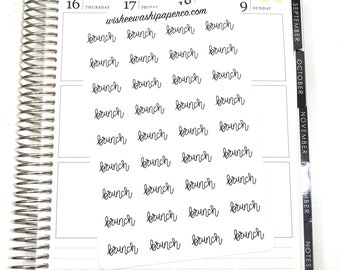 16 THURSDAY 17 18 9 SUNDAY
wisheewashipaperco.com
brunch brunch brunch brunch
brunch brunch brunch brunch
brunch brunch brunch brunch
brunch brunch brunch brunch
brunch brunch brunch brunch
brunch brunch brunch brunch
brunch brunch brunch brunch
brunch brunch brunch brunch
brunch brunch brunch brunch
SEPTEMBER
OCTOBER
NOVEMBER
NOTES